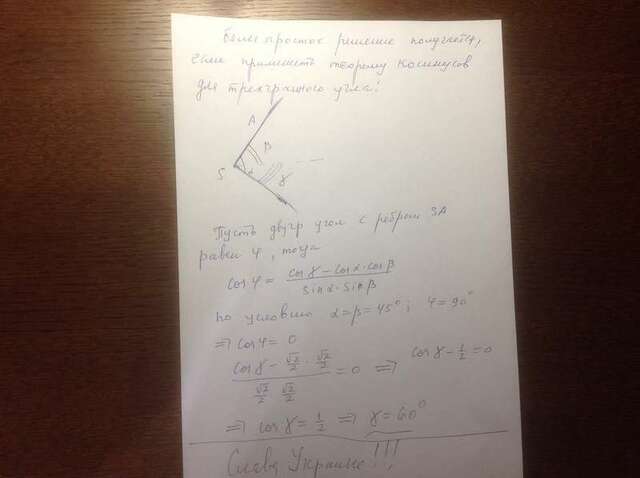 Более простое решение получается,
если применить теорему косинусов
для трехгранного угла:
A
β
S
α
γ
Пусть двугр угол с ребром SA
равен φ, тогда
cos φ = (cos γ − cos α · cos β) / (sin α · sin β)
по условию α = β = 45°; φ = 90°
⇒ cos φ = 0
(cos γ − √2/2 · √2/2) / (√2/2 √2/2) = 0 ⇒ cos γ − 1/2 = 0
⇒ cos γ = 1/2 ⇒ γ = 60°
Слава Украине!!!